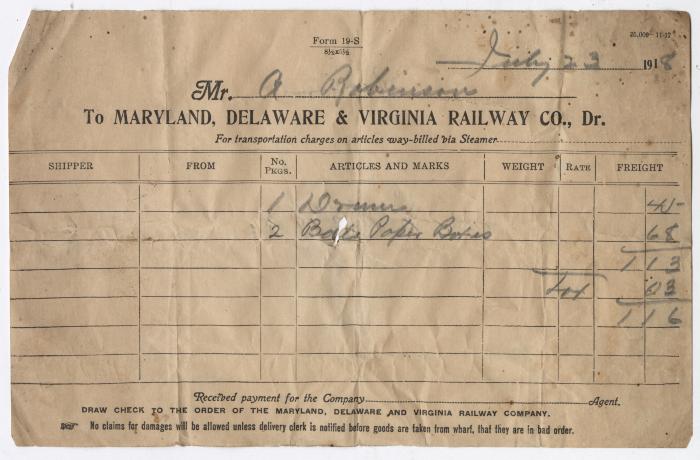 Form 19-S
8½x5½
25,000—11-17
July 23 1918
Mr. A Robinson
To MARYLAND, DELAWARE & VIRGINIA RAILWAY CO., Dr.
For transportation charges on articles way-billed via Steamer
SHIPPER FROM No. PKGS. ARTICLES AND MARKS WEIGHT RATE FREIGHT
1 45
2 Paper Boxes 68
1 13
Tax 03
1 16
Received payment for the Company Agent.
DRAW CHECK TO THE ORDER OF THE MARYLAND, DELAWARE AND VIRGINIA RAILWAY COMPANY.
No claims for damages will be allowed unless delivery clerk is notified before goods are taken from wharf, that they are in bad order.